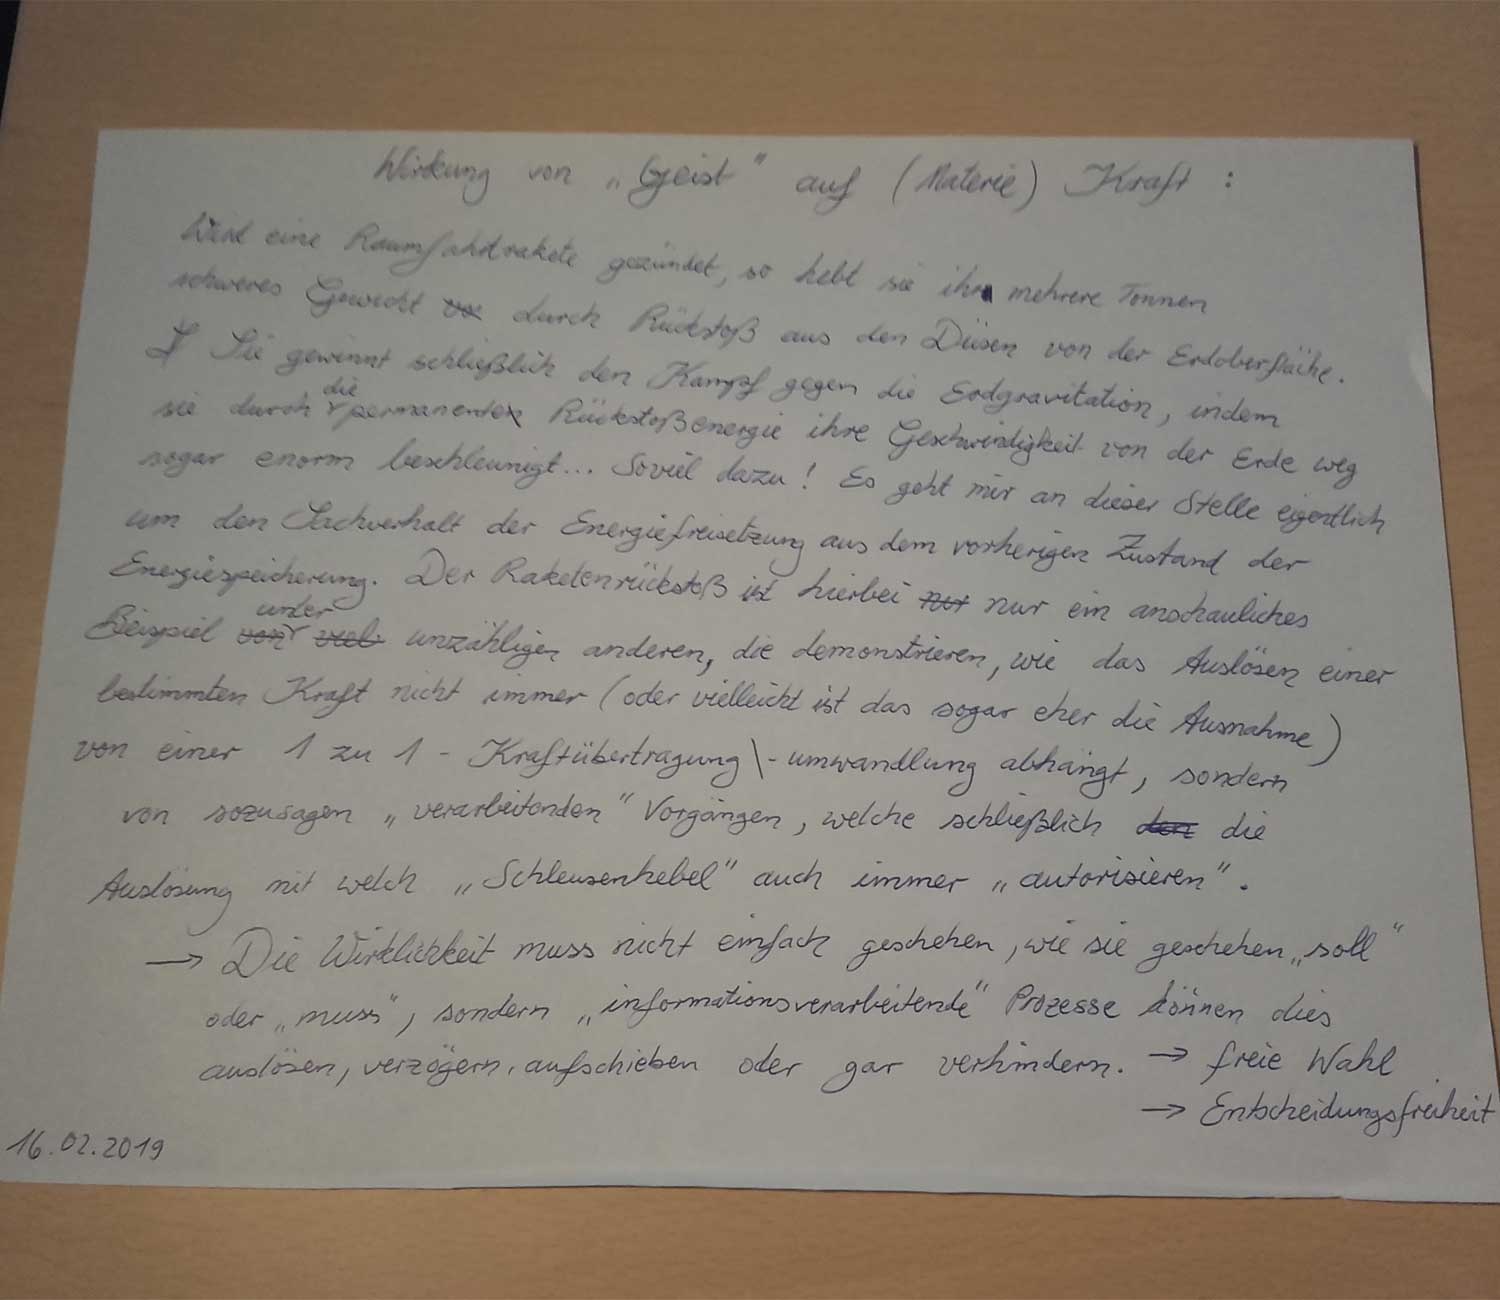 Wirkung von „Geist" auf (Materie) Kraft :
Wird eine Raumfahrtrakete gezündet, so hebt sie ihr mehrere Tonnen
schweres Gewicht durch Rückstoß aus den Düsen von der Erdoberfläche.
Sie gewinnt schließlich den Kampf gegen die Erdgravitation, indem
sie durch die permanente Rückstoßenergie ihre Geschwindigkeit von der Erde weg
sogar enorm beschleunigt... Soviel dazu! Es geht mir an dieser Stelle eigentlich
um den Sachverhalt der Energiefreisetzung aus dem vorherigen Zustand der
Energiespeicherung. Der Raketenrückstoß ist hierbei nur ein anschauliches
Beispiel unter unzähligen anderen, die demonstrieren, wie das Auslösen einer
bestimmten Kraft nicht immer (oder vielleicht ist das sogar eher die Ausnahme)
von einer 1 zu 1 - Kraftübertragung \ - umwandlung abhängt, sondern
von sozusagen „verarbeitenden" Vorgängen, welche schließlich die
Auslösung mit welch „Schleusenhebel" auch immer „autorisieren".
→ Die Wirklichkeit muss nicht einfach geschehen, wie sie geschehen „soll"
oder „muss", sondern „informationsverarbeitende" Prozesse können dies
auslösen, verzögern, aufschieben oder gar verhindern. → freie Wahl
→ Entscheidungsfreiheit
16.02.2019